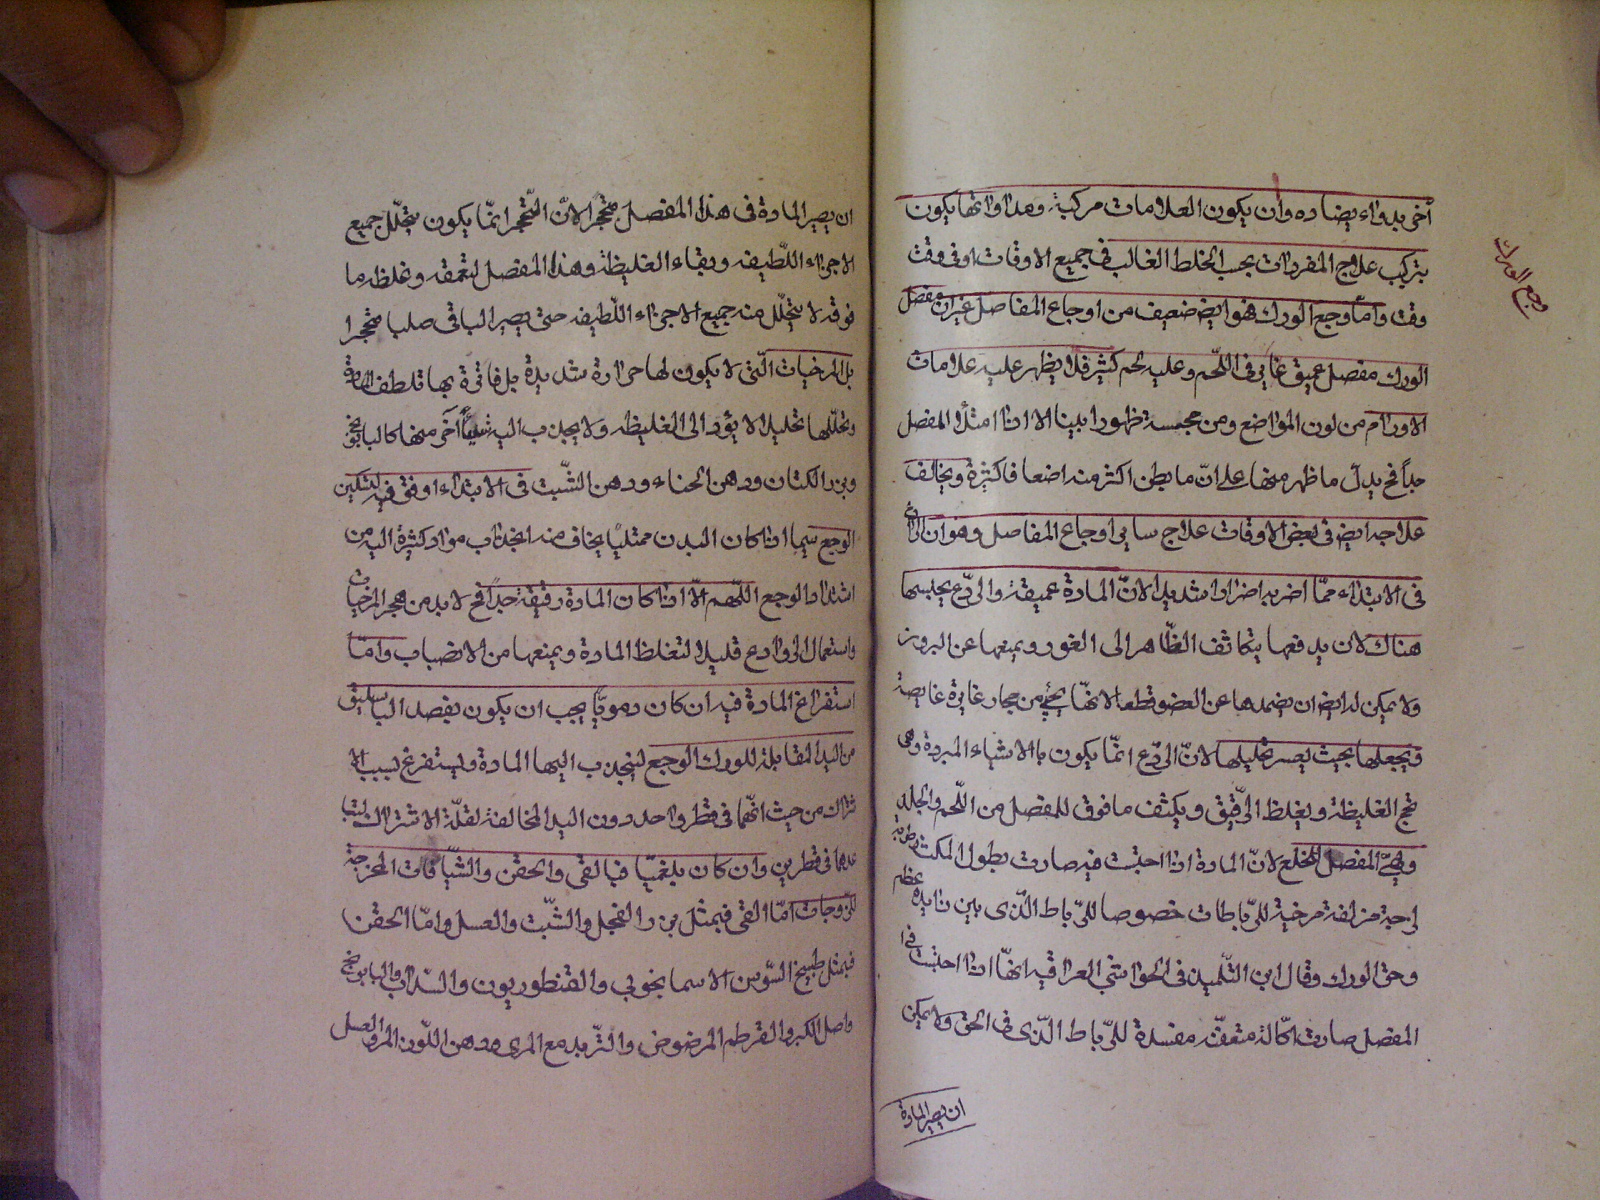 آخر بدواء يضاده وأن يكون العلامات مركبة ومداواتها يكون
بتركيب علاج المفردات بحسب الخلط الغالب في جميع الاوقات او في وقت
وقت وأما وجع الورك فهو ايضه ضعيف من اوجاع المفاصل غير ان مفصل
الورك مفصل عميق غاير في اللّحم وعليه لحم كثير فلا يظهر عليه علامات
الاورام من لون المواضع ومن مجسته ظهورا بينا الا اذا امتلأ المفصل
جداً فح يدلّ ما ظهر منها على انّ ما بطن اكثر منه اضعافا كثيرة ويخالف
علاجه ايضه في بعض الاوقات علاج ساير اوجاع المفاصل وهو ان الرادع
في الابتداء ممّا اضرّ به اضرارا شديدا لانّ المادة عميقة والردع يحبسها
هناك لان يدفعها بتكاثف الظّاهر الى الغور ويمنعها عن البروز
ولا يمكن له ايضه ان يصدها عن العضو قطعا لانهّا يجئ من مجار غايرة غايصة
ويجعلها بحيث يعسر تحليلها لانّ الردع انمّا يكون بالاشياء المبردة وهى
تفجج الغليظة ويغلظ الرّقيق ويكثف ما فوق للمفصل من اللّحم والجلد
ويهيّئ المفصل للخلع لانّ المادة اذا احتبست فيه صارت بطول المكث رطوبة
لزجة مزلقة مرخية للرّباطات خصوصا للرّباط الّذى بين زايدة عظم
وحق الورك وقال ابن التّلميذ في الحواشي العراقيه انهّا اذا احتبست في هذا
المفصل صارت اكّالة متعفّنه مفسدة للرّباط الّذى في الحق ولا يمكن
ان يصير المادة
وجع الورك
ان يصير المادة في هذا المفصل متحجرا لانّ التّحجر انمّا يكون بتحلّل جميع
الاجزاء اللّطيفه وبقاء الغليظة وهذا المفصل لتعمقه وغلظ ما
فوقه لا يتحلّل منه جميع الاجزاء اللّطيفه حتى يصير الباقى صلبا متحجرا
بل المرخيات الّتى لا يكون لها حرارة شديدة بل فاترة بها تلطف المادة
وتحللّها تحليلا لا يؤدى الى الغليظه ولا يجذب اليه شيئاً آخر منها كالبابونج
وبزر الكتان ودهن الحناء ودهن الشّبت في الابتداء اوفق فيه لتسكين
الوجع سيما اذا كان البدن ممتلياً يخاف منه انجذاب مواد كثيرة اليه من
اشتداد الوجع اللّهم الاّ اذا كان المادة رقيقة جداً فح لا بد من هجر المرخيات
واستعمال الروادع قليلا لتغلظ المادة ويمنعها من الانصباب وامّا
استفراغ المادة فيه ان كان دمويّا يجب ان يكون بفصد الباسليق
من اليد المقابلة للورك الوجع لينجذب اليها المادة ويستفرغ بسبب الا
شتراك من حيث انهّما في قطر واحد دون اليد المخالفة لقلّة الاشتراك لتبا
عدهما في قطرين وان كان بلغميّا فبالقي والحقن والشّيافات المخرجة
للّزوجات امّا القي فبمثل بزر الفجل والشّبت والعسل وامّا الحقن
فبمثل طبيخ السّوسن الاسمانجوني والقنطوريون والسّذاب والبابونج
واصل الكبر والقرطم المرضوض والتّربد مع المرى ودهن اللّوز المر والعسل